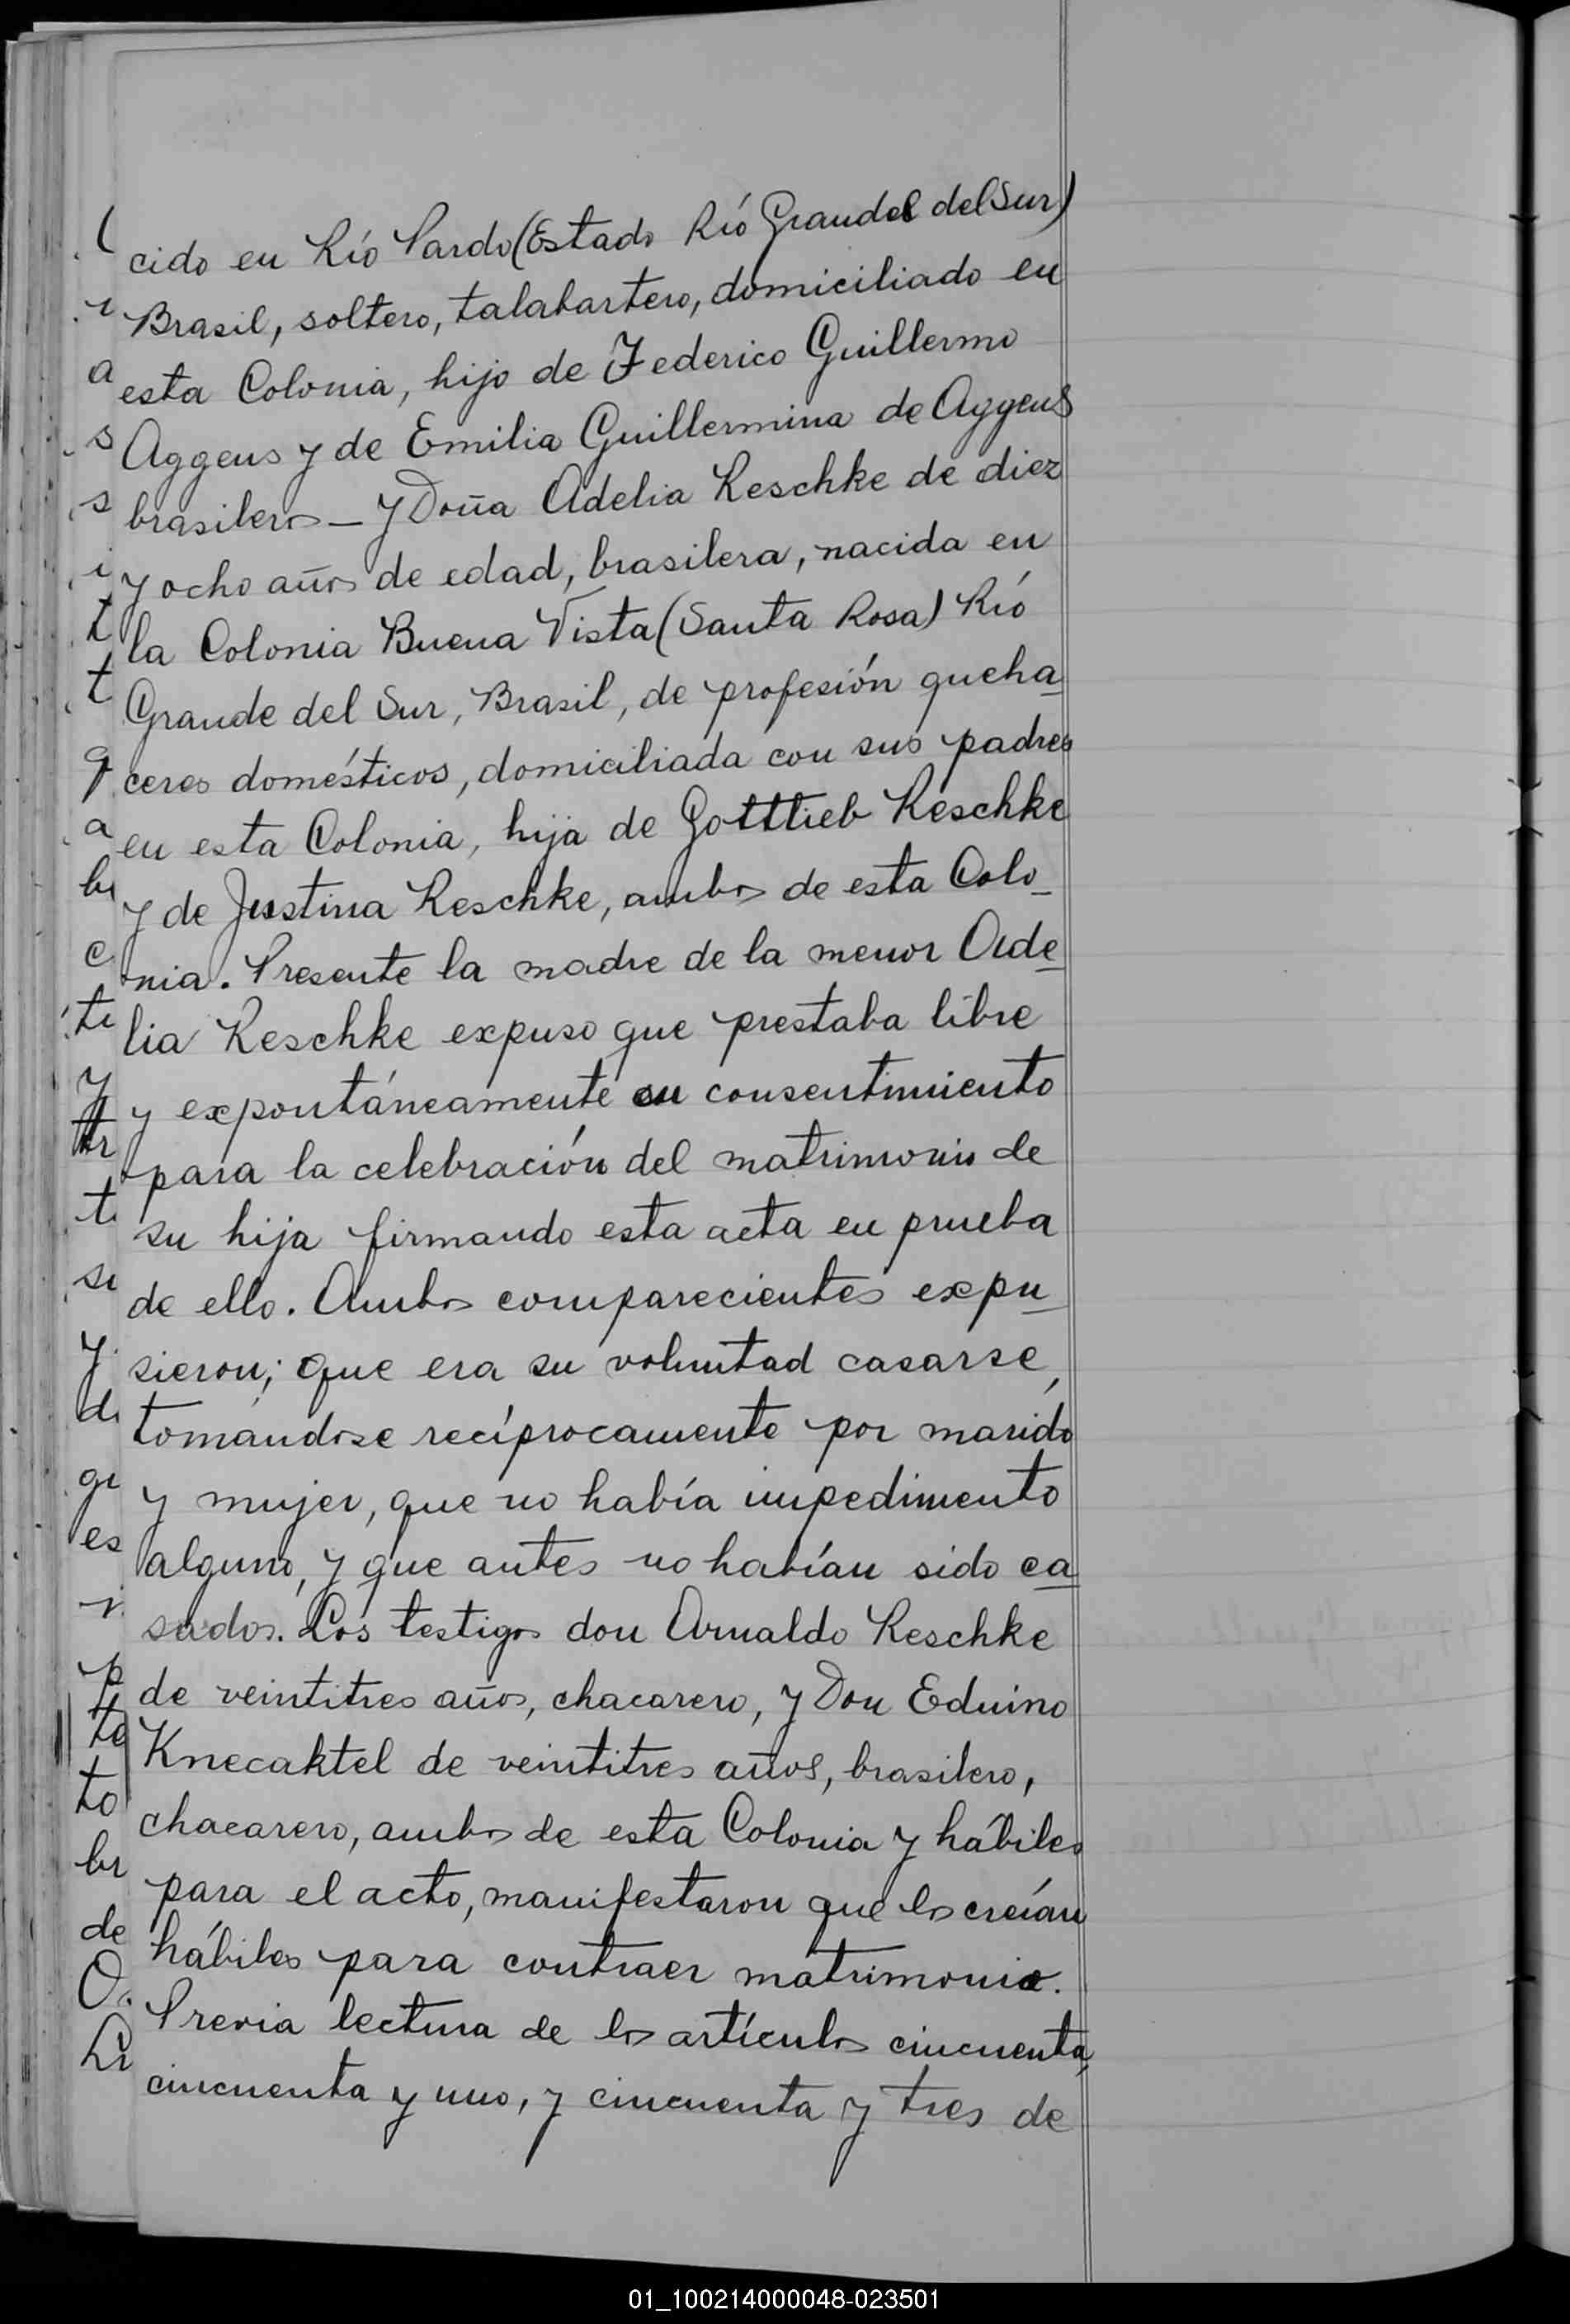 cido en Río Pardo (Estado Río Grandel del Sur)
Brasil, soltero, talabartero, domiciliado en
esta Colonia, hijo de Federico Guillermo
Aggens y de Emilia Guillermina de Aggens
brasileros — y Doña Adelia Reschke de diez
y ocho años de edad, brasilera, nacida en
la Colonia Buena Vista (Santa Rosa) Río
Grande del Sur, Brasil, de profesión queha_
ceres domésticos, domiciliada con sus padres
en esta Colonia, hija de Gotttlieb Reschke
y de Justina Reschke, ambos de esta Colo_
nia. Presente la madre de la menor Ade_
lia Reschke expuso que prestaba libre
y expontáneamente su consentimiento
para la celebración del matrimonio de
su hija firmando esta acta en prueba
de ello. Ambos comparecientes expu_
sieron; que era su voluntad casarse,
tomándose recíprocamente por marido
y mujer, que no había impedimento
alguno, y que antes no habían sido ca_
sados. Los testigos don Arnaldo Reschke
de veintitres años, chacarero, y Don Eduino
Knecaktel de veintitres años, brasilero,
chacarero, ambos de esta Colonia y hábiles
para el acto, manifestaron que los creían
hábiles para contraer matrimonio.
Previa lectura de los artículos cincuenta,
cincuenta y uno, y cincuenta y tres de
01_100214000048-023501